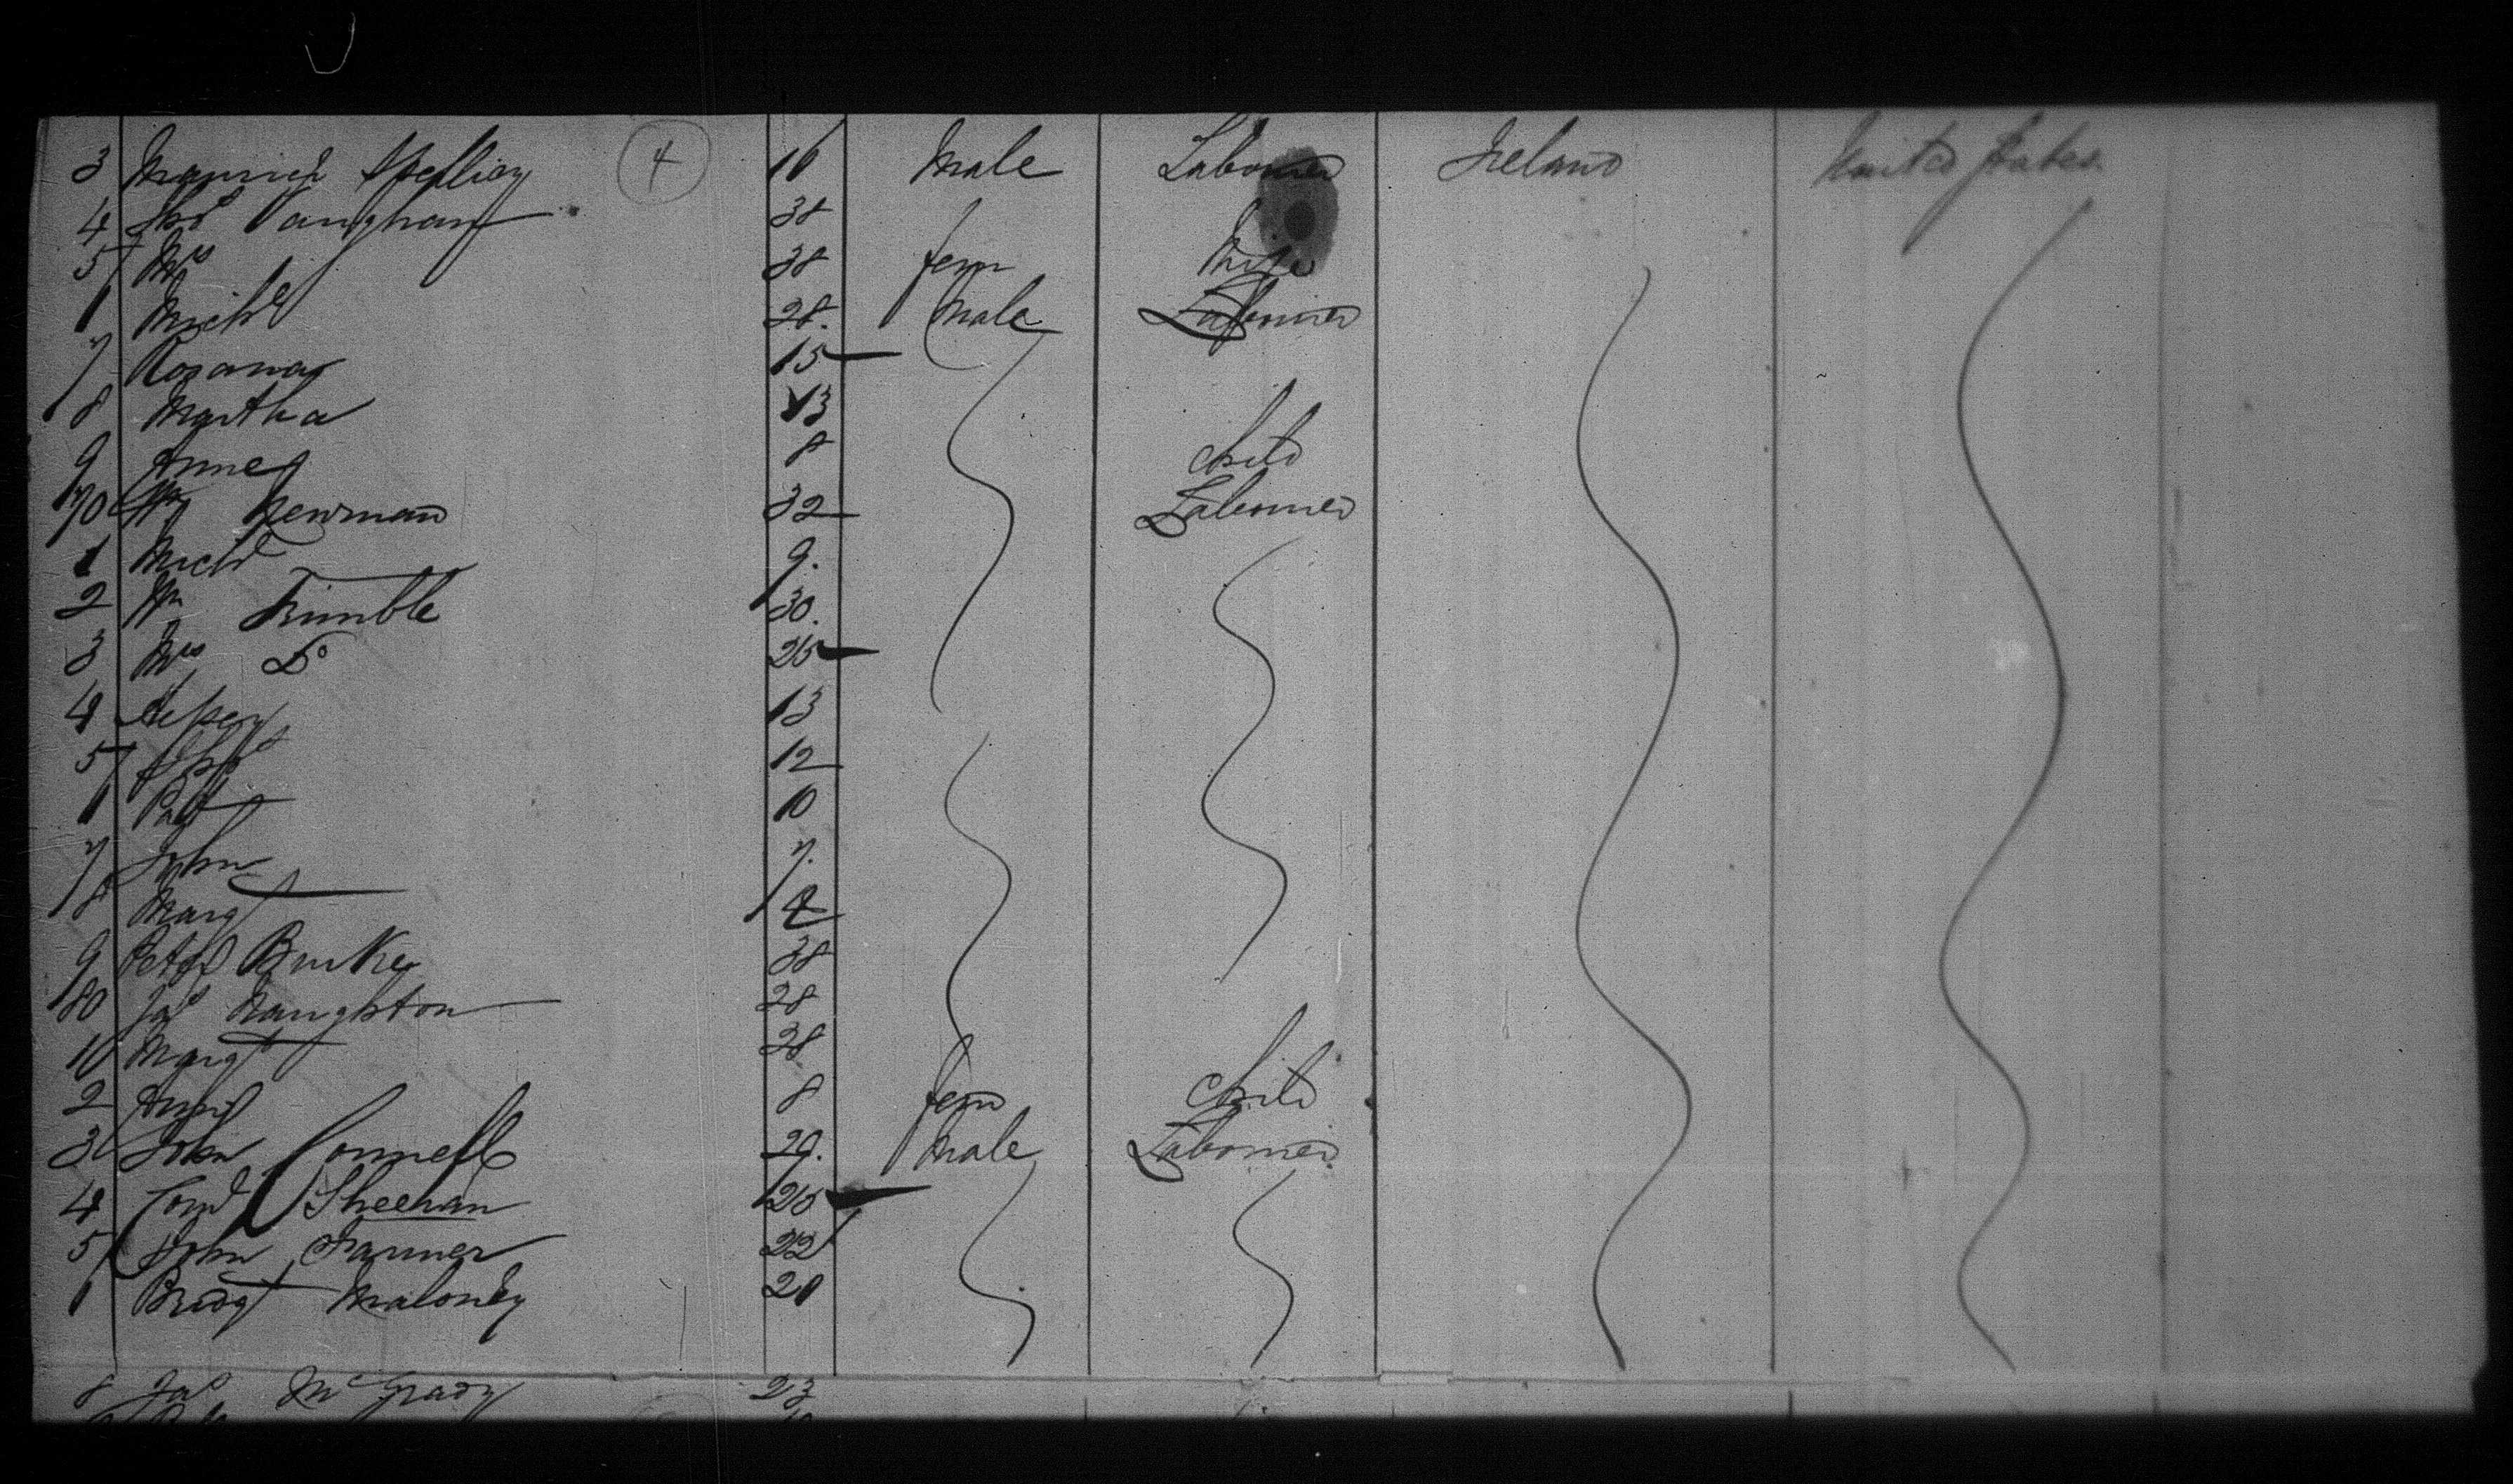 4
3 Maurice Spellicy 16 Male Labourer Ireland United States
4 Thos Vaughan 38
5 Mrs 38 fem Wife
1 Michl 28. Male Labourer
7 Rosanna 15
8 Martha 13
9 Anne 8 child
70 Wm Newman 32 Labourer
1 Michl 9.
2 Wm Trimble 30.
3 Mrs Do 25
4 13
5 Thos 12
1 Patt 10
7 John 7.
8 Margt 4
9 Peter Burke 38
80 Jas Naughton 28
10 Margt 28
2 Anne 8 fem child
3 John Connell 29. Male Labourer
4 Cornl Sheehan 25
5 John Farmer 22
1 Bridgt Maloney 21
8 Jas McGrady 23